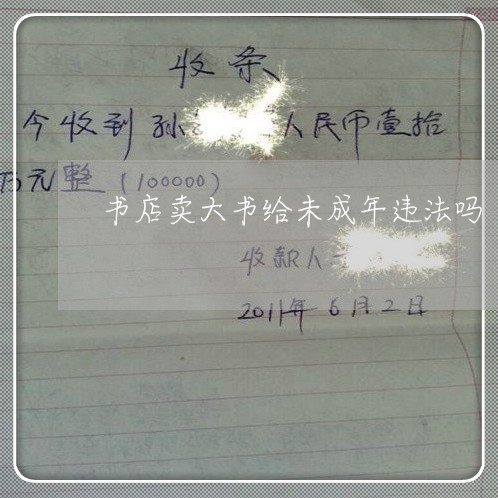 收条
今收到孙 人民币壹拾
万元整(100000)
书店卖大书给未成年违法吗
收款人
2011年6月2日